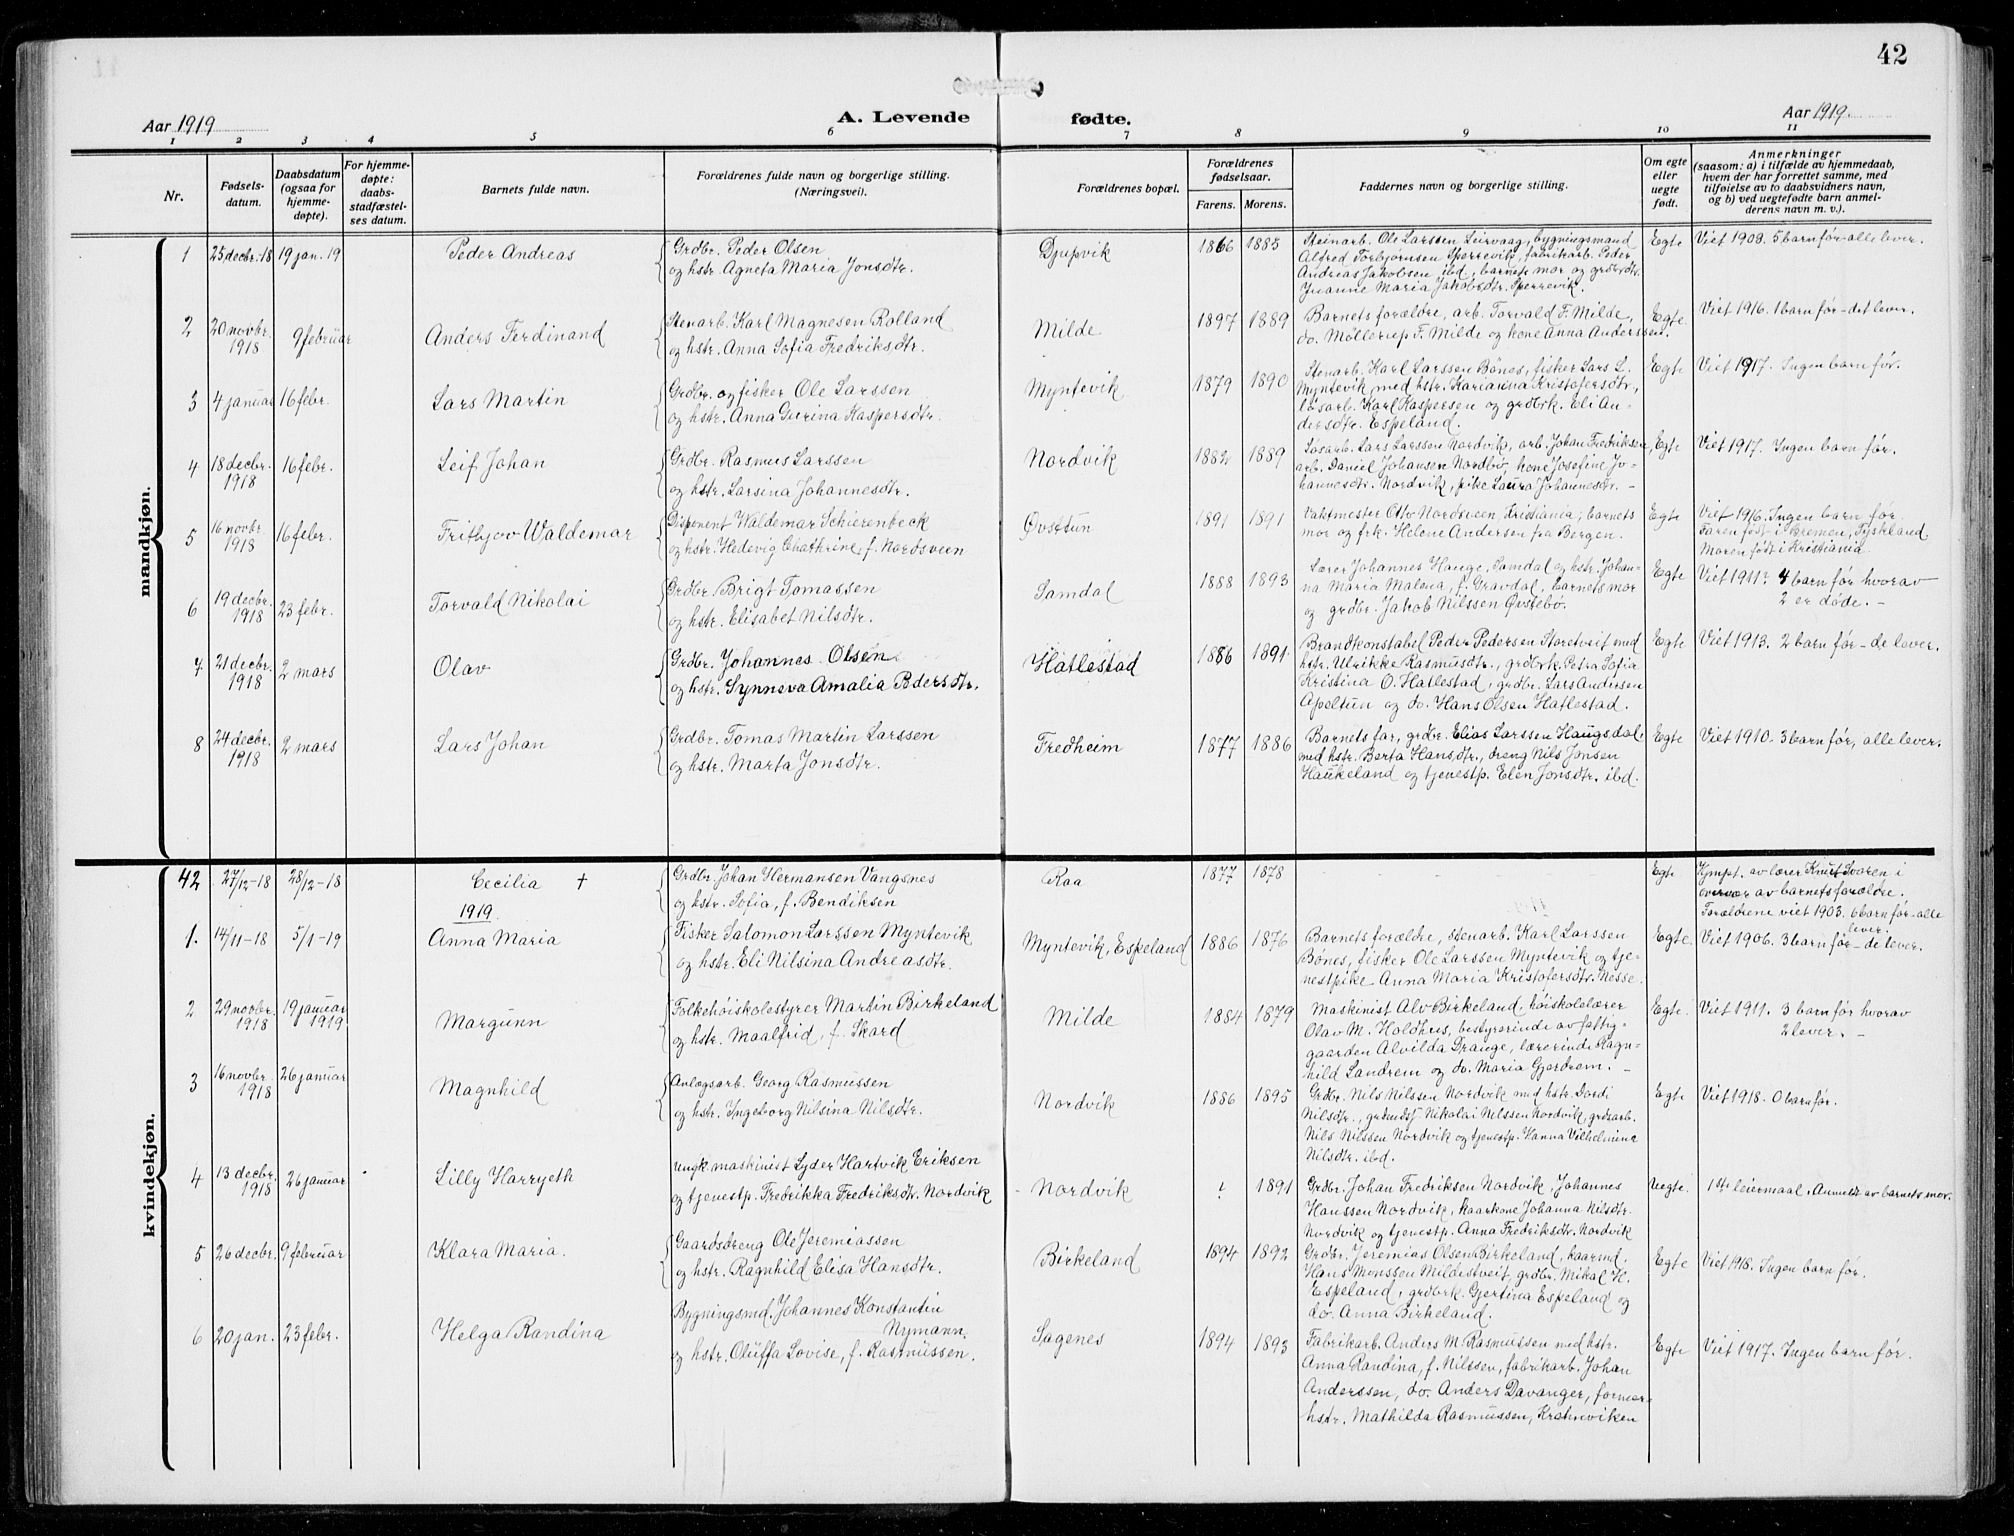 42
Aar 1919
A. Levende
fødte.
Aar 1919.
1 2 3 4 5 6 7 8 9 10 11
Nr.
Fødsels-
datum.
Daabsdatum
(ogsaa for
hjemme-
døpte).
For hjemme-
døpte:
daabs-
stadfæstel-
ses datum.
Barnets fulde navn.
Forældrenes fulde navn og borgerlige stilling.
(Næringsvei).
Forældrenes bopæl.
Forældrenes
fødselsaar.
Farens. Morens.
Faddernes navn og borgerlige stilling.
Om egte
eller
uegte
født.
Anmerkninger
(saasom: a) i tilfælde av hjemmedaab,
hvem der har forrettet samme, med
tilføielse av to daabsvidners navn,
og b) ved uegtefødte barn anmel-
derens navn m. v.).
mandkjøn.
1
25 decbr. 18
19 jan. 19
Peder Andreas
Grdbr. Peder Olsen
og hstr. Agneta Maria Jonsdtr.
Djupvik
1866
1885
Steinarb. Ole Larssen Leirvaag, bygningsmand
Alfred Torbjørnsen Sperrevik, fabrikarb. Peder
Andreas Jakobsen ibd, barnets mor og grdrdtr.
Maria Jakobsdtr. Sperrevik.
Egte
Viet 1908. 5 barn før - alle lever.
2
20 novbr.
1918
9 februar
Anders Ferdinand
Stenarb. Karl Magnesen Rolland
og hstr. Anna Sofia Fredriksdtr.
Milde
1897
1889
Barnets forældre, arb. Torvald F. Milde,
do. Møllerup F. Milde og kone Anna Anderssen.
Egte.
Viet 1916. 1 barn før - det lever.
3
4 januar
16 febr.
Lars Martin
Grdbr. og fisker Ole Larssen
og hstr. Anna Gurina Kaspersdtr.
Myntevik
1879
1890
Stenarb. Karl Larssen Bönes, fisker Lars L.
Myntevik med hstr. Karianna Kristofersdtr.,
løsarb. Karl Kaspersen og grdbrk. Eli An-
dersdtr. Espeland.
Egte
Viet 1917. Ingen barn før.
4
18 decbr.
1918
16 febr.
Leif Johan
Grdbr. Rasmus Larssen
og hstr. Larsina Johannesdtr.
Nordvik
1882
1889
Løsarb. Lars Larssen Nordvik, arb. Johan Fredriksen,
arb. Daniel Johansen Nordbø, kone Josefine Jo-
hannesdtr. Nordvik, pike Laura Johannesdtr. -
Egte
Viet 1917. Ingen barn før.
5
16 novbr.
1918
16 febr.
Fritbjov Waldemar
Disponent Waldemar Schierenbeck
og hstr. Hedevig Chathrine, f. Nordsveen
Øvsttun
1891
1891
Vaktmester Otto Nordsveen, Kristiania; barnets
mor og frk. Helene Andersen fra Bergen.
Egte
Viet 1916. Ingen barn før.
Faren født i Bremen, Tyskland
Moren født i Kristiania
6
19 decbr.
1918
23 febr.
Torvald Nikolai
Grdbr. Brigt Tomassen
og hstr. Elisabet Nilsdtr.
Samdal
1888
1893
Lærer Johannes Hauge, Samdal og hstr. Johan-
na Maria Malena, f. Gravdal, barnets mor
og grdbr. Jakob Nilssen Øvstebø.
Egte
Viet 1911. 4 barn før hvorav
2 er døde. -
7
21 decbr.
1918
2 mars
Olav
Grdbr. Johannes Olsen
og hstr. Synneva Amalia Pedersdtr.
Hatlestad
1886
1891
Brandkonstabel Peder Pedersen Storetveit med
hstr. Ulrikke Rasmusdtr., grdbrk. Petra Sofia
Kristina O. Hatlestad, grdbr. Lars Andersen
Apeltun og do. Hans Olsen Hatlestad.
Egte
Viet 1913. 2 barn før - de lever.
8
24 decbr.
1918
2 mars
Lars Johan
Grdbr. Tomas Martin Larssen
og hstr. Marta Jonsdtr.
Fredheim
1877
1886
Barnets far, grdbr. Elias Larssen Haugsdal
med hstr. Berta Hansdtr., dreng Nils Jonsen
Haukeland og tjenestp. Elen Jonsdtr. ibd.
Egte
Viet 1910. 3 barn før, alle lever.
kvindekjøn.
42
27/12-18
28/12-18
Cecilia +
Grdbr. Johan Hermansen Vangsnes
og hstr. Sofia, f. Bendiksen
Raa
1877
1878
Egte
Hjmpt. av lærer Knut Svoren i
overvær av barnets forældre.
Forældrene viet 1903. 6 barn før - alle
lever.
1919
1.
14/11-18
5/1-19
Anna Maria
Fisker Salomon Larssen Myntevik
og hstr. Eli Nilsina Andreasdtr.
Myntevik, Espeland
1886
1876
Barnets forældre, stenarb. Karl Larssen
Bønes, fisker Ole Larssen Myntevik og tje-
nestpike Anna Maria Kristofersdtr. Nesse.
Egte.
Viet 1906. 3 barn før - de lever.
2
29 novbr.
1918
19 januar
1919
Margunn
Folkehøiskolestyrer Martin Birkeland
og hstr. Maalfrid, f. Skard
Milde
1884
1879
Maskinist Alv Birkeland, høiskolelærer
Olav M. Holdhus, bestyrerinde av fattig-
gaarden Alvilda Drange, lærerinde Ragn-
hild Landrem og do. Maria Gjerdrem. -
Egte.
Viet 1911. 3 barn før hvorav
2 lever. -
3
16 novbr.
1918
26 januar
Magnhild
Anlægsarb. Georg Rasmussen
og hstr. Ingeborg Nilsina Nilsdtr.
Nordvik
1886
1895
Grdbr. Nils Nilssen Nordvik med hstr. Dordi
Nilsdtr., Nikolai Nilssen Nordvik, grdsarb.
Nils Nilssen Nordvik og tjenestp. Hanna Vilhelmina
Nilsdtr. ibd.
Egte
Viet 1918. 0 barn før.
4
13 decbr.
1918
26 januar
Lilly Harryeth
Ungk. maskinist Lyder Hartvik Eriksen
og tjenestp. Fredrikka Fredriksdtr. Nordvik
Nordvik
?
1891
Grdbr. Johan Fredriksen Nordvik, Johannes
Hanssen Nordvik, kaarkone Johanna Nilsdtr.
Nordvik og tjenestp. Anna Fredriksdtr. Nordvik
Uegte.
1ste leiermaal. Anmeldt av barnets mor.
5
26 decbr.
9 februar
Klara Maria.
Gaardsdreng Ole Jeremiassen
og hstr. Ragnhild Elisa Hansdtr.
Birkeland
1894
1892
Grdbr. Jeremias Olsen Birkeland, kaarmd.
Hans Monssen Mildestveit, grdbr. Mikal H.
Espeland, grdbrk. Gjertina Espeland og
do. Anna Birkeland.
Egte
Viet 1918. Ingen barn før.
6
20 jan.
23 febr.
Helga Randina
Bygningsmd. Johannes Konstantin
Nymann
og hstr. Oluffa Lovise, f. Rasmussen.
Sagenes
1894
1893
Fabrikarb. Anders M. Rasmussen med hstr.
Anna Randina, f. Nilssen, fabrikarb. Johan
Anderssen, do. Anders Davanger, former-
hstr. Mathilda Rasmussen, Krahneviken
Egte
Viet 1917. Ingen barn før.